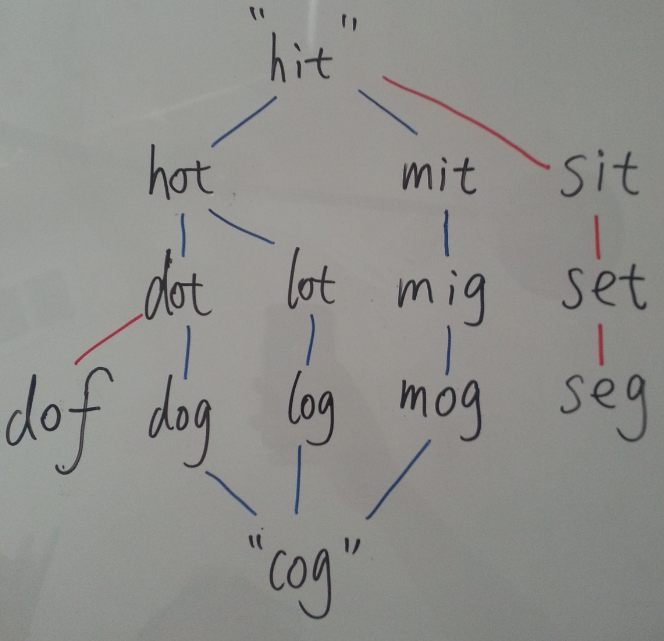 "hit"
hot mit sit
dot lot mig set
dof dog log mog seg
"cog"